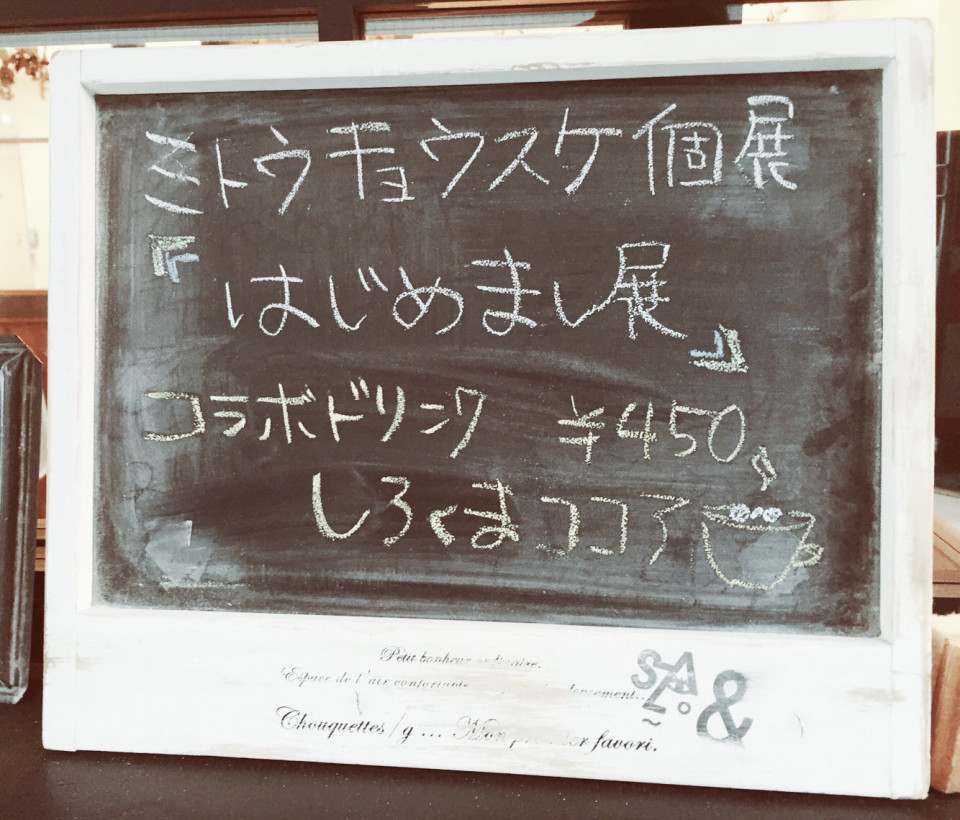 ミトウキョウスケ個展
『はじめまし展』
コラボドリンク ¥450
しろくまココア
Petit bonheur ordinaire.
Espace de l'air confortante
Chouquettes/g ... Mon premier favori.
SALo &